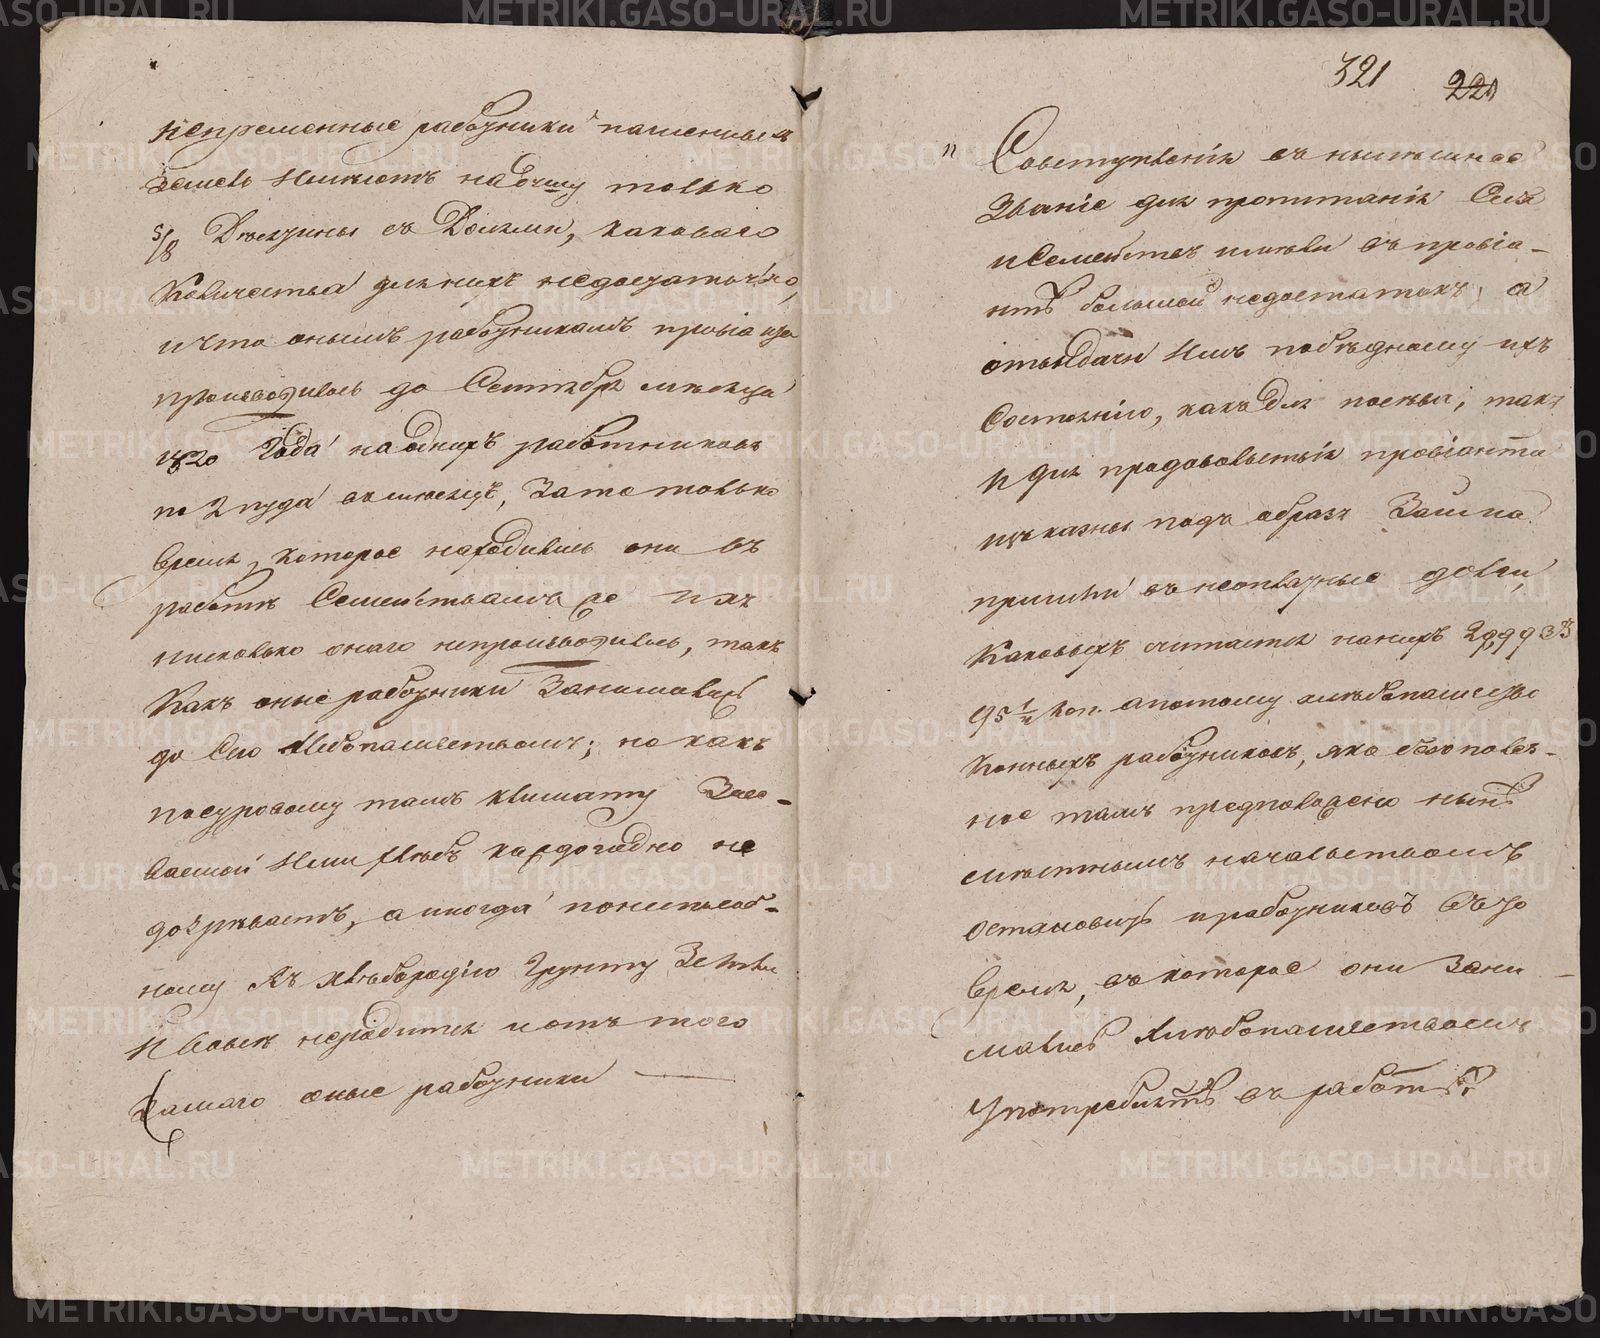 непременные работники пашенныхъ
земель Имѣютъ на душу только
5/8 Десятины съ Долями, каковаго
Количества для нихъ недостаточно,
и что онымъ работникамъ провіанта
производилось до Сентября месяца
1820 Года на однихъ работниковъ
по 2 пуда въ месяцъ, За то только
Время, которое находились они въ
работѣ Семействамъ же ихъ
нисколько онаго непроизводилось, такъ
Какъ оные работники Занимались
до Сего Хлебопашествомъ; но какъ
по суровому тамъ климату Засе-
ваемой Ими Хлебъ каждогодно не
дозреваетъ, а иногда по неспособ-
ному Къ хлебородію Грунту Земли
И вовсе неродится и отъ того
Самаго оные работники
321 221
" Со вступленія въ нынешнее
Званіе для пропитанія Себя
и Семействъ имели въ провіа-
нтѣ большой недостатокъ, а
отъ выдачи Имъ по бедному ихъ
Состоянію, какъ для посева, такъ
И для продовольствія провіанта
изъ казны подъ образъ Займа
пришли въ неоплатные долги,
Каковыхъ считается на нихъ
95 1/2 коп. а потому хлебопашество
Конныхъ работниковъ, яко безполез-
ное тамъ предположено ныне
местнымъ начальствомъ
остановить и работниковъ въ то
Время, въ которое они Зани-
мались Хлебопашествомъ
Употреблять въ работы